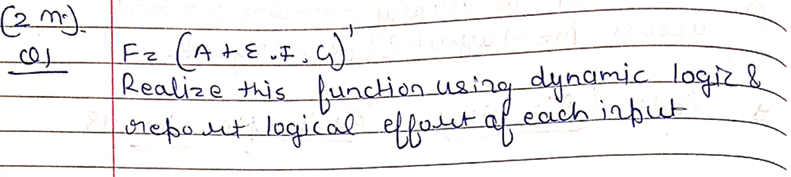 (2 m).
Q1 F = (A + E . F . G)'
Realize this function using dynamic logic &
report logical effort of each input